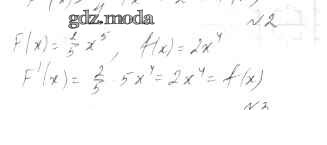 gdz.moda
N2
F(x) = 2/5 x⁵, f(x) = 2x⁴
F'(x) = 2/5 · 5x⁴ = 2x⁴ = f(x)